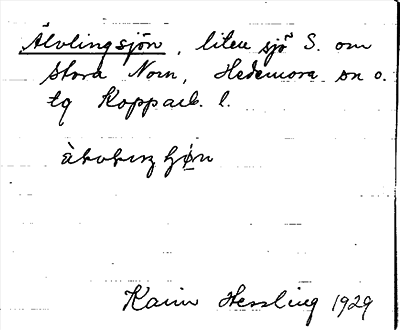 Älvlingsjön, liten sjö S. om
Stora Norn, Hedemora sn o.
tg Kopparb. l.
Karin Hessling 1929